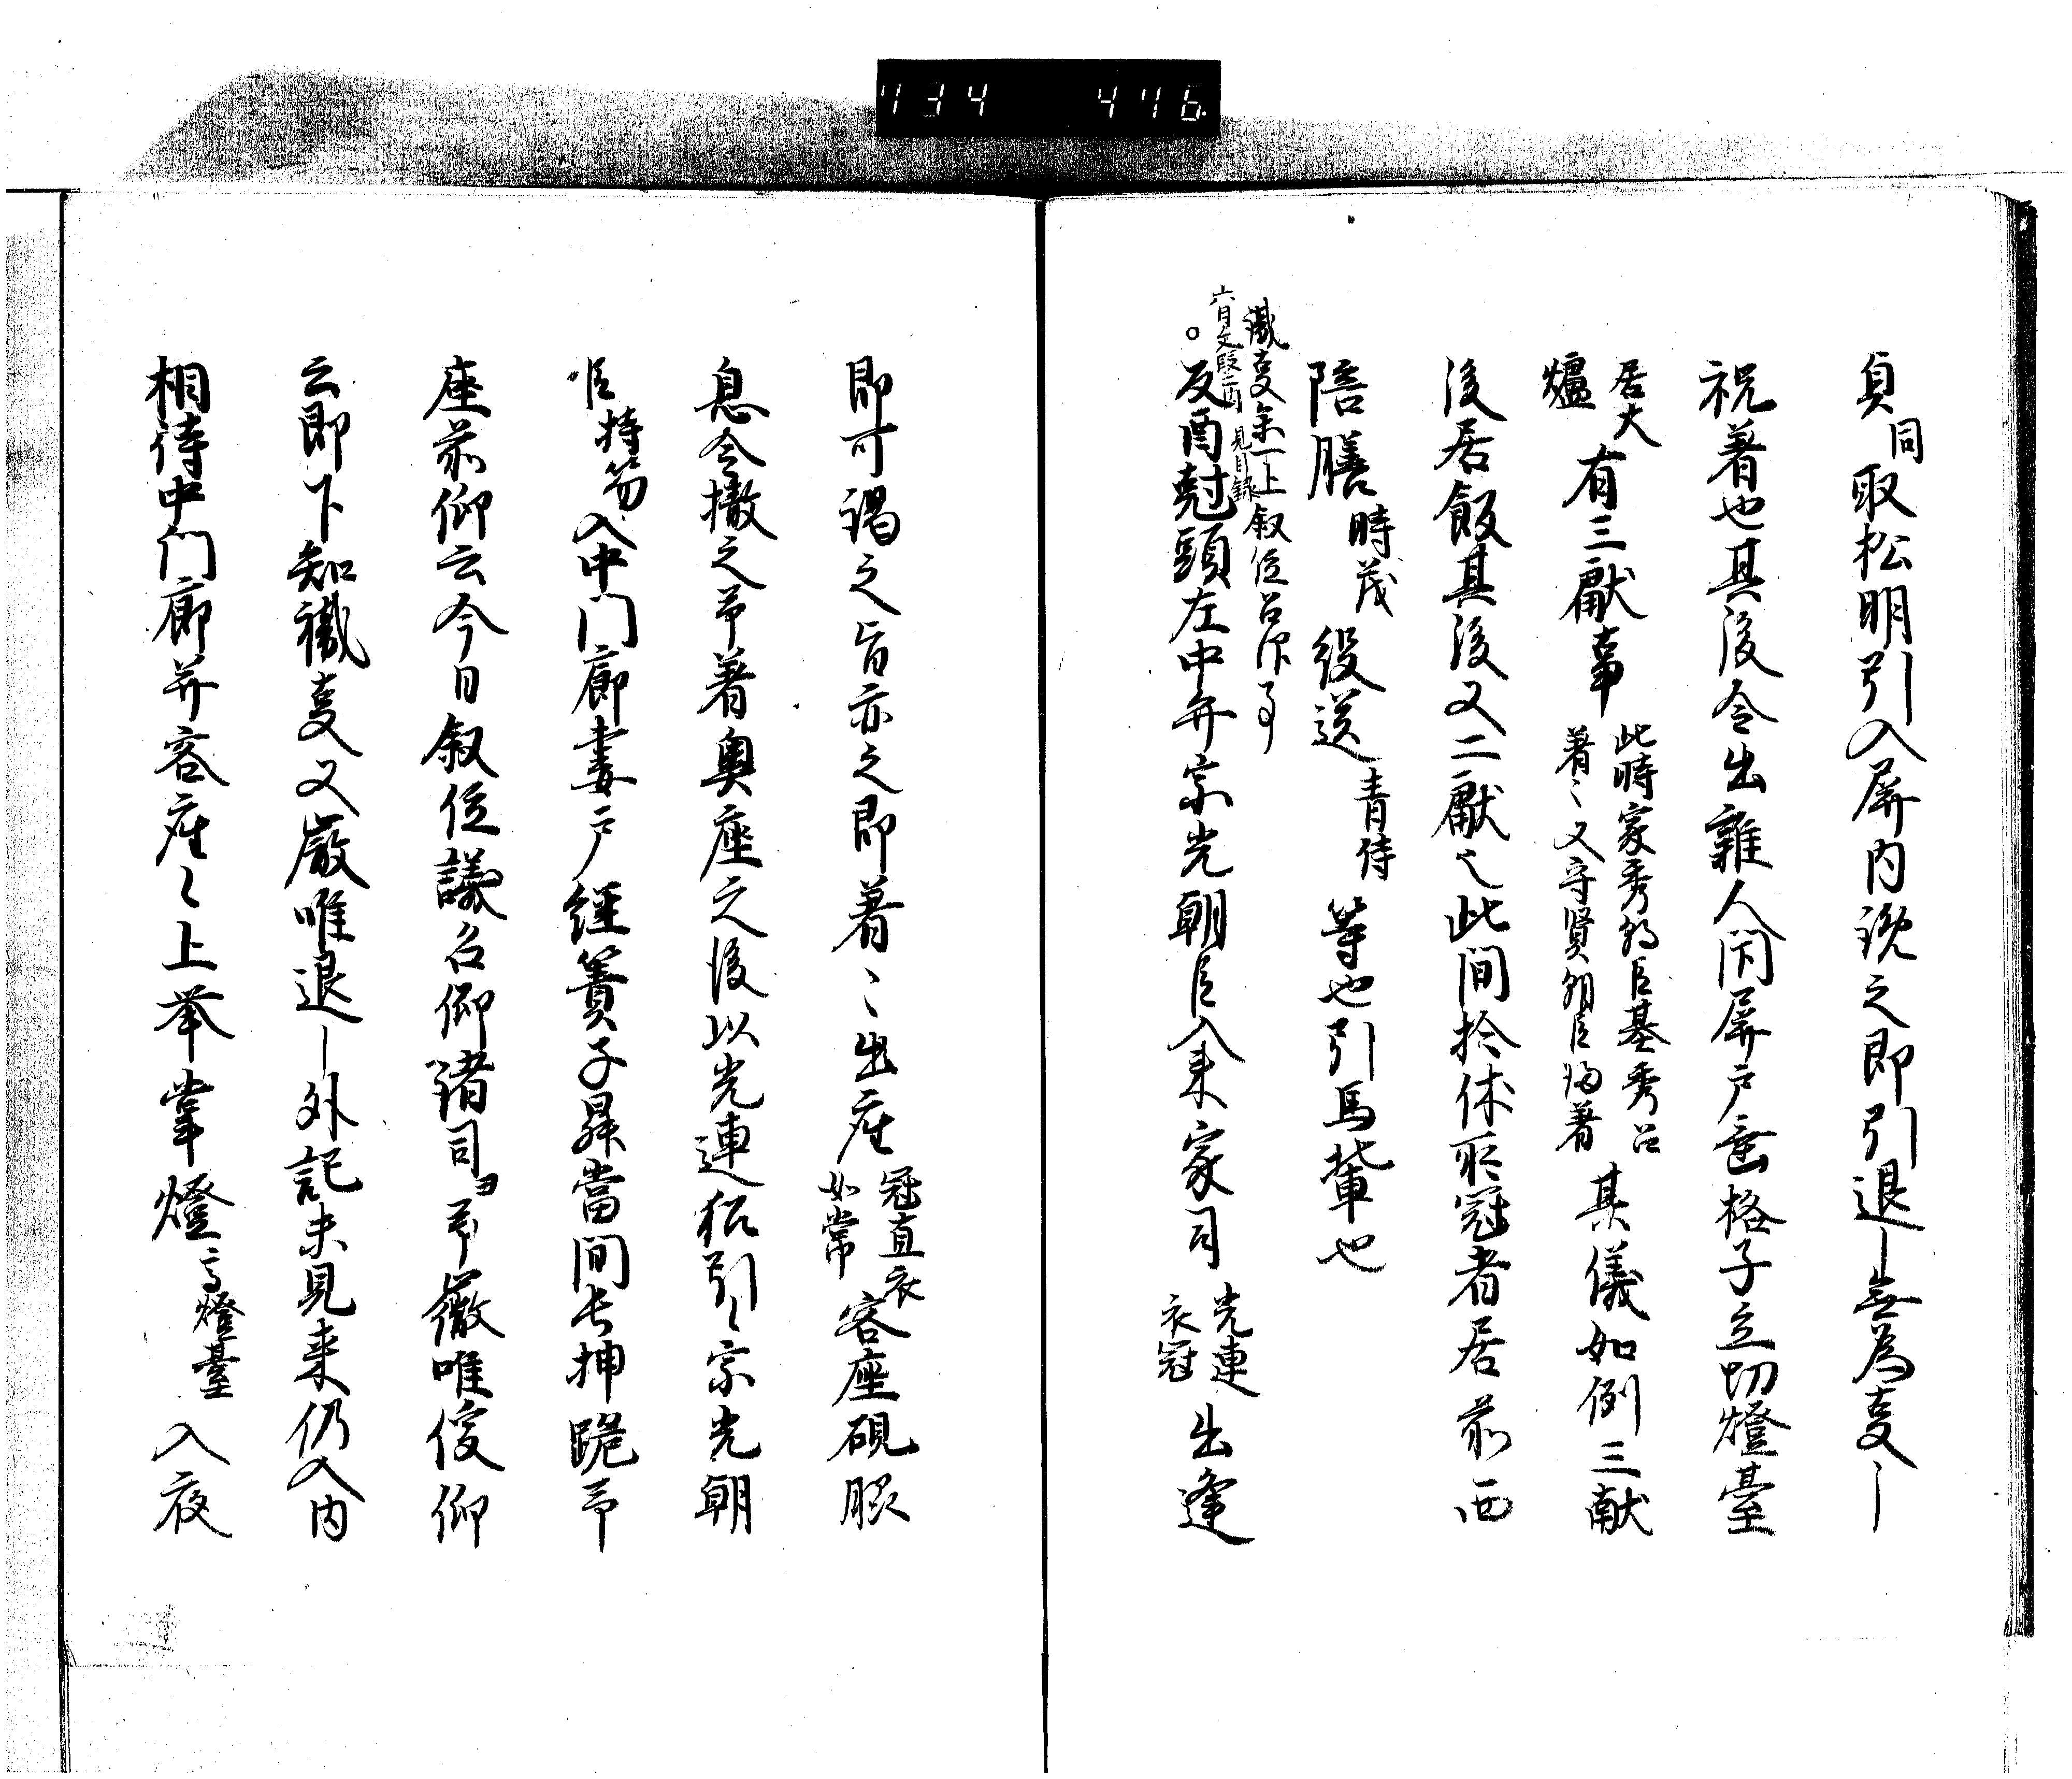 734 476
貞同取松明引入屏内祝之即引退〻無為事〻
祝着也其後令出雑人閇屏戸垂格子立切燈臺
居大
爐有三献事此時家秀朝臣基秀召
着〻又守賢朝臣帰着其儀如例三献
後居飯其後又二献也此間於休所冠者居前西
陪膳時茂役送青侍等也引馬輩也
職事参上叙位召仰事
六日文殿西見目録
。及酉剋頭左中弁宗光朝臣入来家司光連
衣冠出逢
即可謁之旨示之即着〻出座冠直衣
如常客座硯脇
息令撤之予着奥座之後以光連招引〻宗光朝
臣持笏入中门廊妻戸経簀子昇當間長押跪予
座前仰云今日叙位議召仰諸司ヨ予微唯復仰
云即下知職事又厳唯退〻外記未見来仍入内
相待中门廊并客座〻上挙掌燈高燈臺入夜